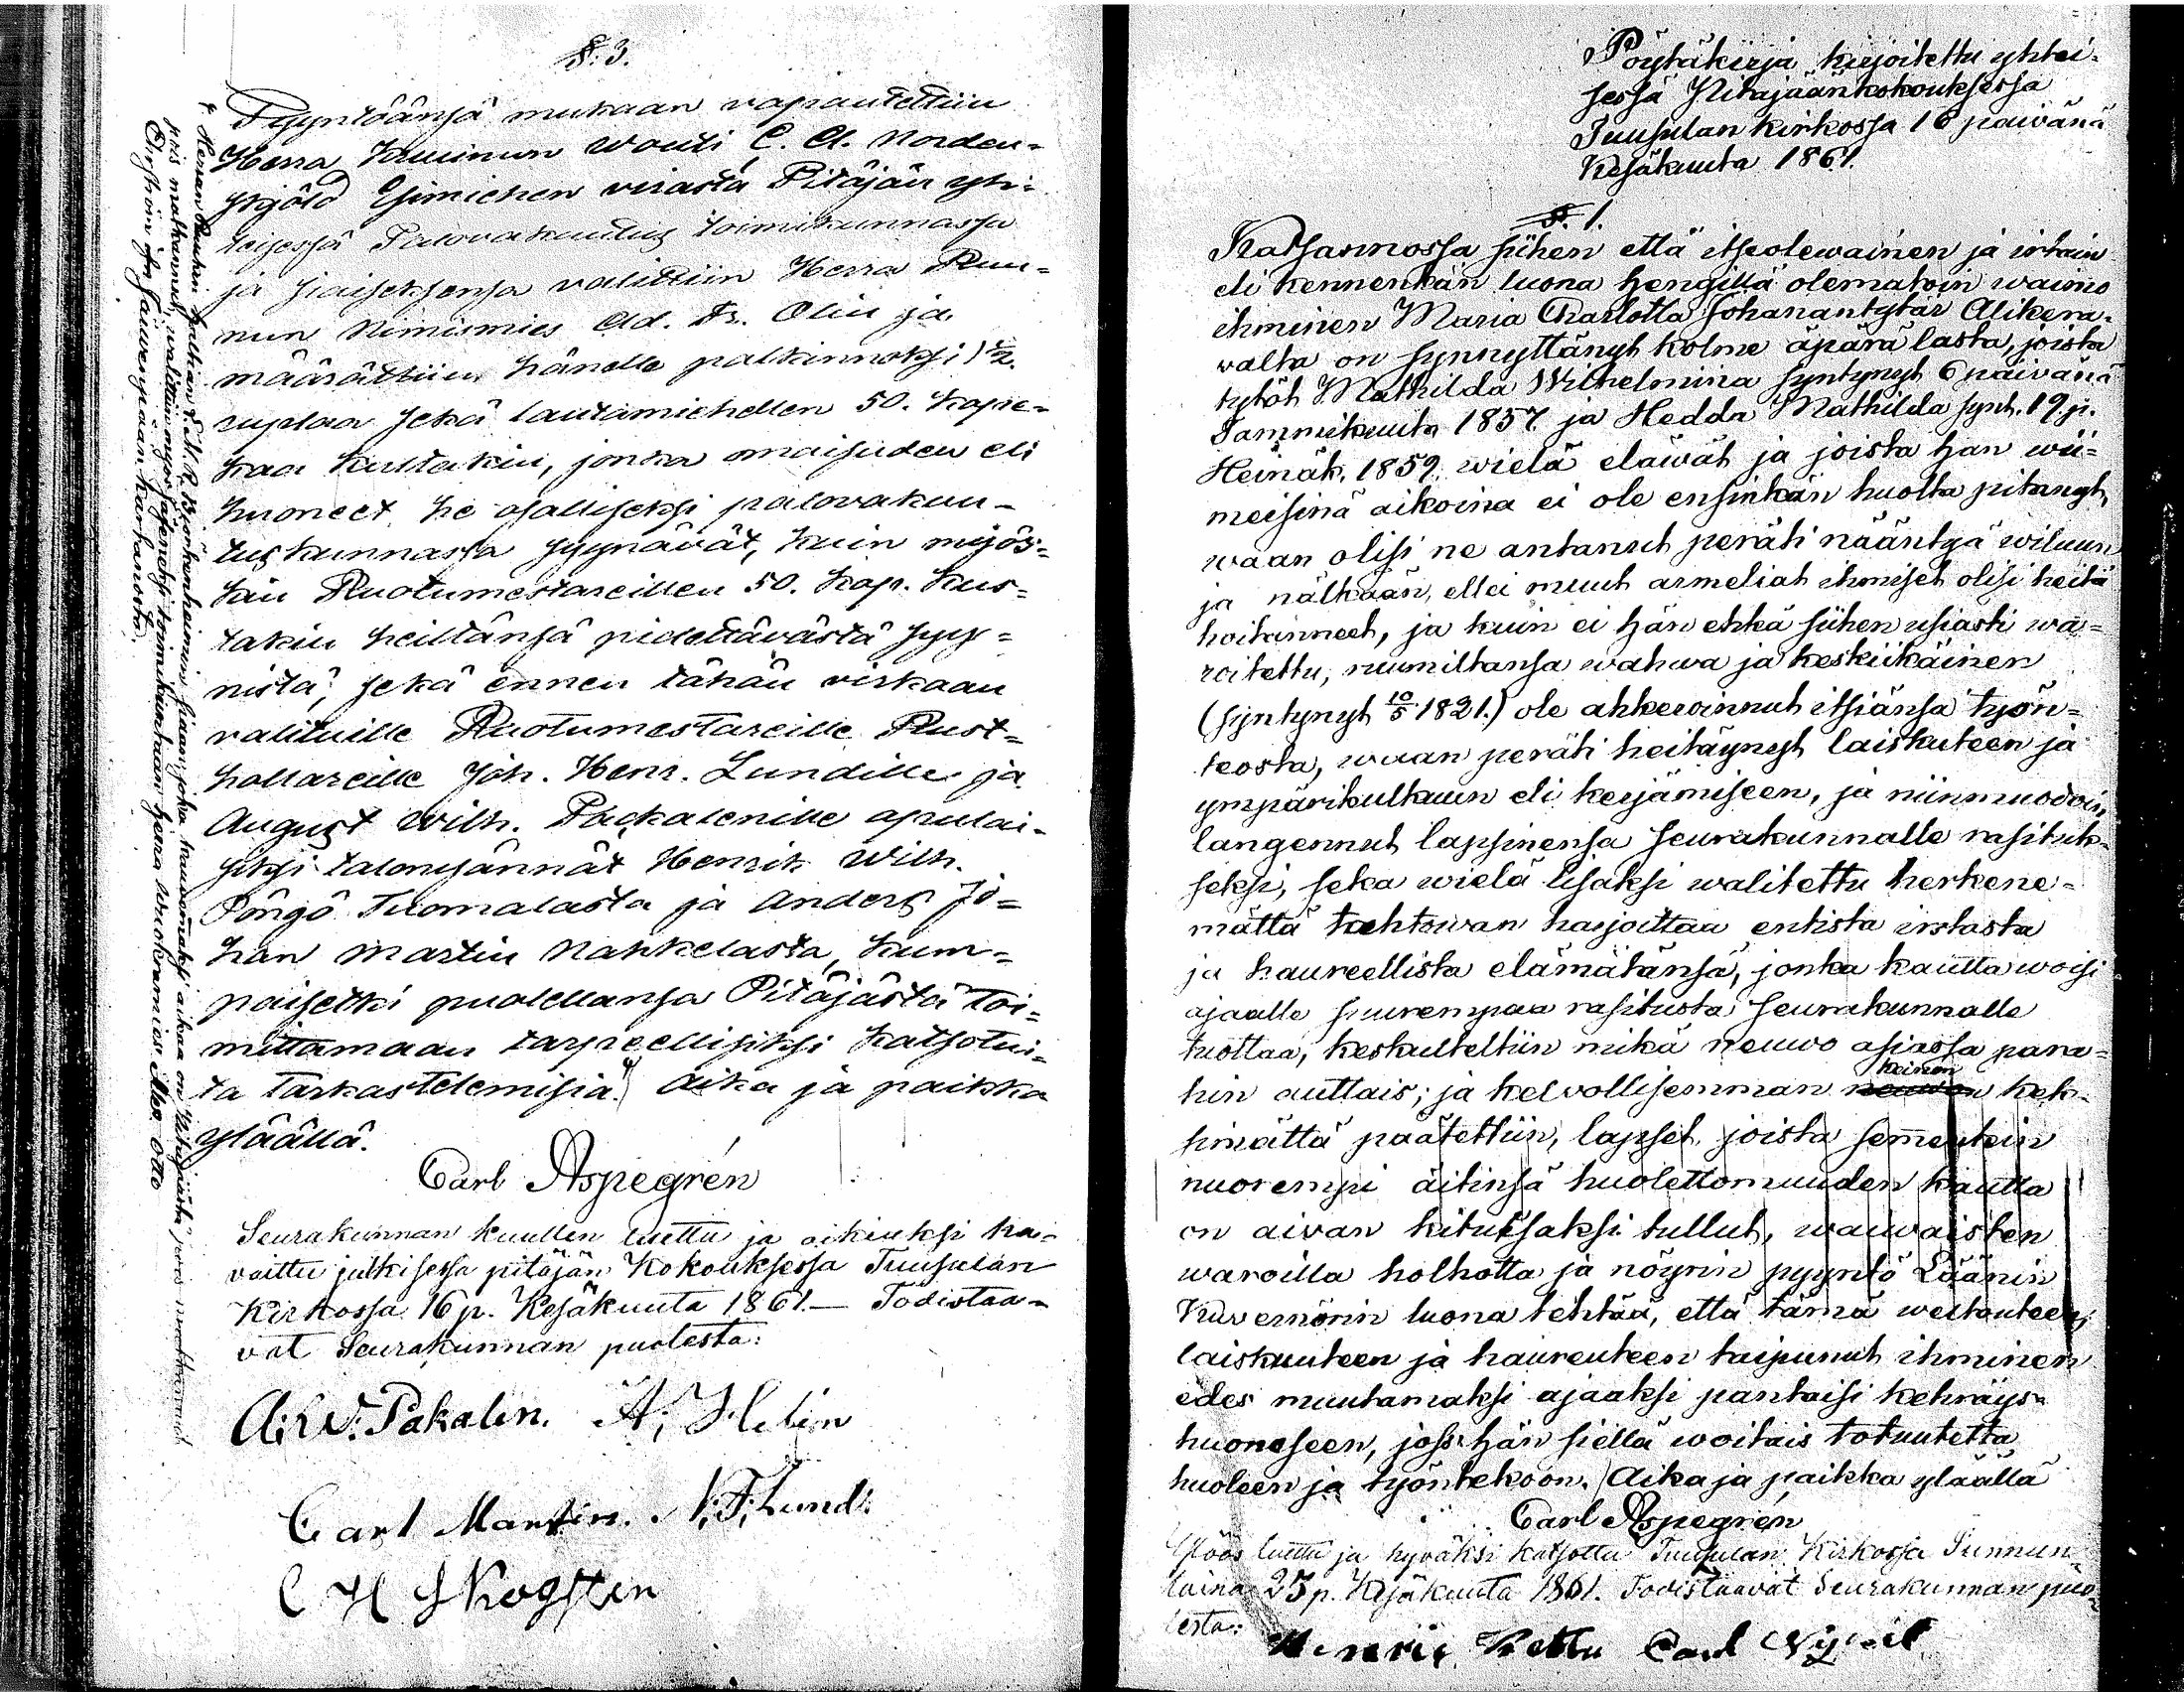 §. 3.
Pyyntöänsä mukaan vapautettiin
Herra Kruunun Wouti C. A. Norden-
skjöld Esimiehen virasta Pitäjän yh-
teisessä Palovakuutus toimikunnassa
ja siaiseksensa valittiin Herra Ruu-
nun Nimismies Ad. Fr. Olin ja
määrättiin hänelle palkinnoksi 1 1/2.
ruplaa sekä lautamiehellen 50. kope-
kaa kultakin, jonka omaisuden eli
huoneet he osalliseksi palovakuu-
tuskunnassa syynäävät, kuin myös-
kin Ruotumestareillen 50. kop. kus-
takin heiltänsä pidettävästä syy-
nistä; sekä ennen tähän virkaan
valituille Ruotumestareille Rust-
hollareille Joh. Henr. Lundille ja
August Wilh. Packalenille apulai-
siksi talonisännät Henrik Wilh.
Pöngö Tuomalasta ja Anders Jo-
han Martin Nahkelasta, kum-
paisetki puolellansa Pitäjästä toi-
mittamaan tarpeellisiksi katsotui-
ta tarkastelemisia. Aika ja paikka
yläällä.
Carl Aspegrén
Seurakunnan kuullen luettu ja oikiuksi ha-
vaittu julkisessa pitäjän Kokouksessa Tuusulan
Kirkossa 16 p. Kesäkuuta 1861.— Todistaa-
vat Seurakunnan puolesta:
A: W: Pakalen. A; Helin
Carl Martin. N; F; Lund:
C H Skogsten
pois muuttanut, valittiin myös jäseneksi toimikuntaan herra
Einström Järvenpään kartanosta.
Pöytäkirja kirjoitettu yhtei-
sessä Pitäjäänkokouksessa
Tuusulan kirkossa 16 päivänä
Kesäkuuta 1861.
§. 1.
Katsannossa siihen että itseolewainen ja irtain
eli kennenkän luona hengillä olematoin waimo
ihminen Maria Charlotta Johanantytär Alikera-
valta on synnyttänyt kolme äpärä lasta, joista
tytöt Mathilda Wilhelmina syntynyt 6 päivänä
Tammikuuta 1857 ja Hedda Mathilda synt. 19. p.
Heinäk. 1859. wielä eläwät ja joista hän wii-
meisinä aikoina ei ole ensinkän huolta pitänyt,
waan olisi ne antanut peräti nääntyä wiluun
ja nälkään, ellei muut armeliat ihmiset olisi heitä
hoitanneet, ja kuin ei hän ehkä siihen usiasti wa-
roitettu, ruumiltansa wahwa ja keskiikäinen
(syntynyt 10/5 1821.) ole ahkeroinnut itsiänsä työn-
teosta, waan peräti heitäynyt laiskuteen ja
ympärikulkuun eli kerjämiseen, ja niinmuodoin
langennut lapsinensa seurakunnalle rasituk-
seksi, seka wielä lisäksi walitettu herkene-
mättä tahtowan harjoittaa entista irstasta
ja haureellista elämätänsä, jonka kautta woisi
ajaalle suurempaa rasitusta seurakunnalle
tuottaa, keskulteltiin mikä neuwo asiassa para-
hin auttais; ja kelvollisemman keinon kek-
simättä päätettiin, lapset joista
nuorempi äitinsä huolettomuuden kautta
on aivan kitutsaksi tullut, waiwaisten
waroilla holhotta ja nöyrin pyyntö Läänin
Kuvernörin luona tehtää, että tämä
laiskuuteen ja haureuteen taipunut ihminen
edes muutamaksi ajaaksi pantaisi kehräys-
huoneseen, joss hän siellä woitais totuutetta
huoleen ja työntekoon. Aika ja paikka yläällä
Carl Aspegrén
Ylöös luettu ja hyväksi katsottu Tuusulan Kirkossa Sunnun-
taina 23 p. Kesäkuuta 1861. Todistaavat Seurakunnan puo-
lesta:
Henric Kettu Carl